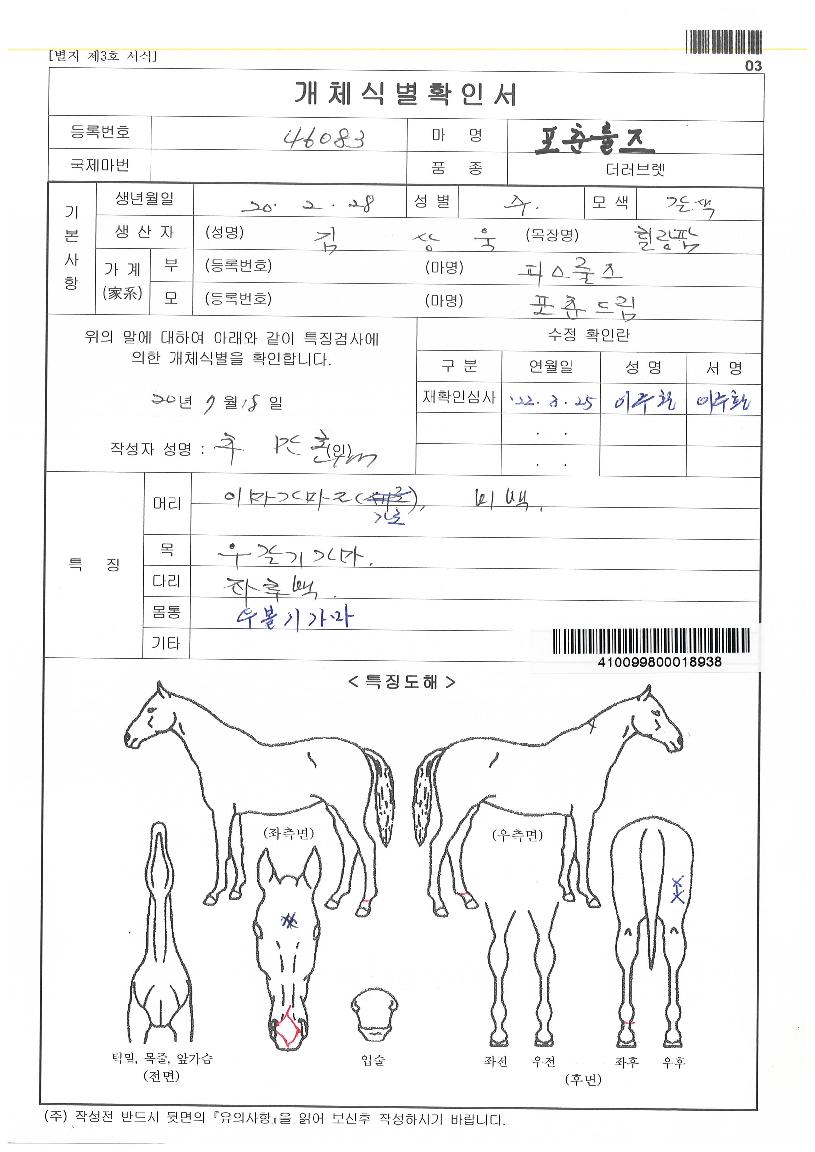 [별지 제3호 서식]
03
개체식별확인서
등록번호 46083 마 명 포춘룰즈
국제마번 품 종 더러브렛
기본사항
생년월일 20. 2. 28 성 별 수. 모 색 갈색
생 산 자 (성명) 김 상 욱 (목장명) 힐링팜
가 계 (家系) 부 (등록번호) (마명) 피스룰즈
모 (등록번호) (마명) 포춘드림
위의 말에 대하여 아래와 같이 특징검사에
의한 개체식별을 확인합니다.
20년 7월 18일
작성자 성명 : (인)
수정 확인란
구 분 연월일 성 명 서 명
재확인심사 '22. 3. 25
특 징
머리 이마가마로( ), 비백.
가로
목 우갈기가마.
다리 좌후백.
몸통 우볼기가마
기타
410099800018938
< 특징도해 >
(좌측면) (우측면)
턱밑, 목줄, 앞가슴 입술 좌전 우전 좌후 우후
(전면) (후면)
(주) 작성전 반드시 뒷면의 『유의사항』을 읽어 보신후 작성하시기 바랍니다.